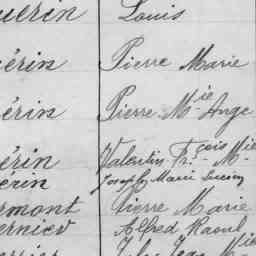 uerin Louis
érin Pierre Marie
érin Pierre Mie Ange
érin Valentin Fr.çois Mie
érin Joseph Marie
rmont Pierre Marie
ernier Alfred Raoul